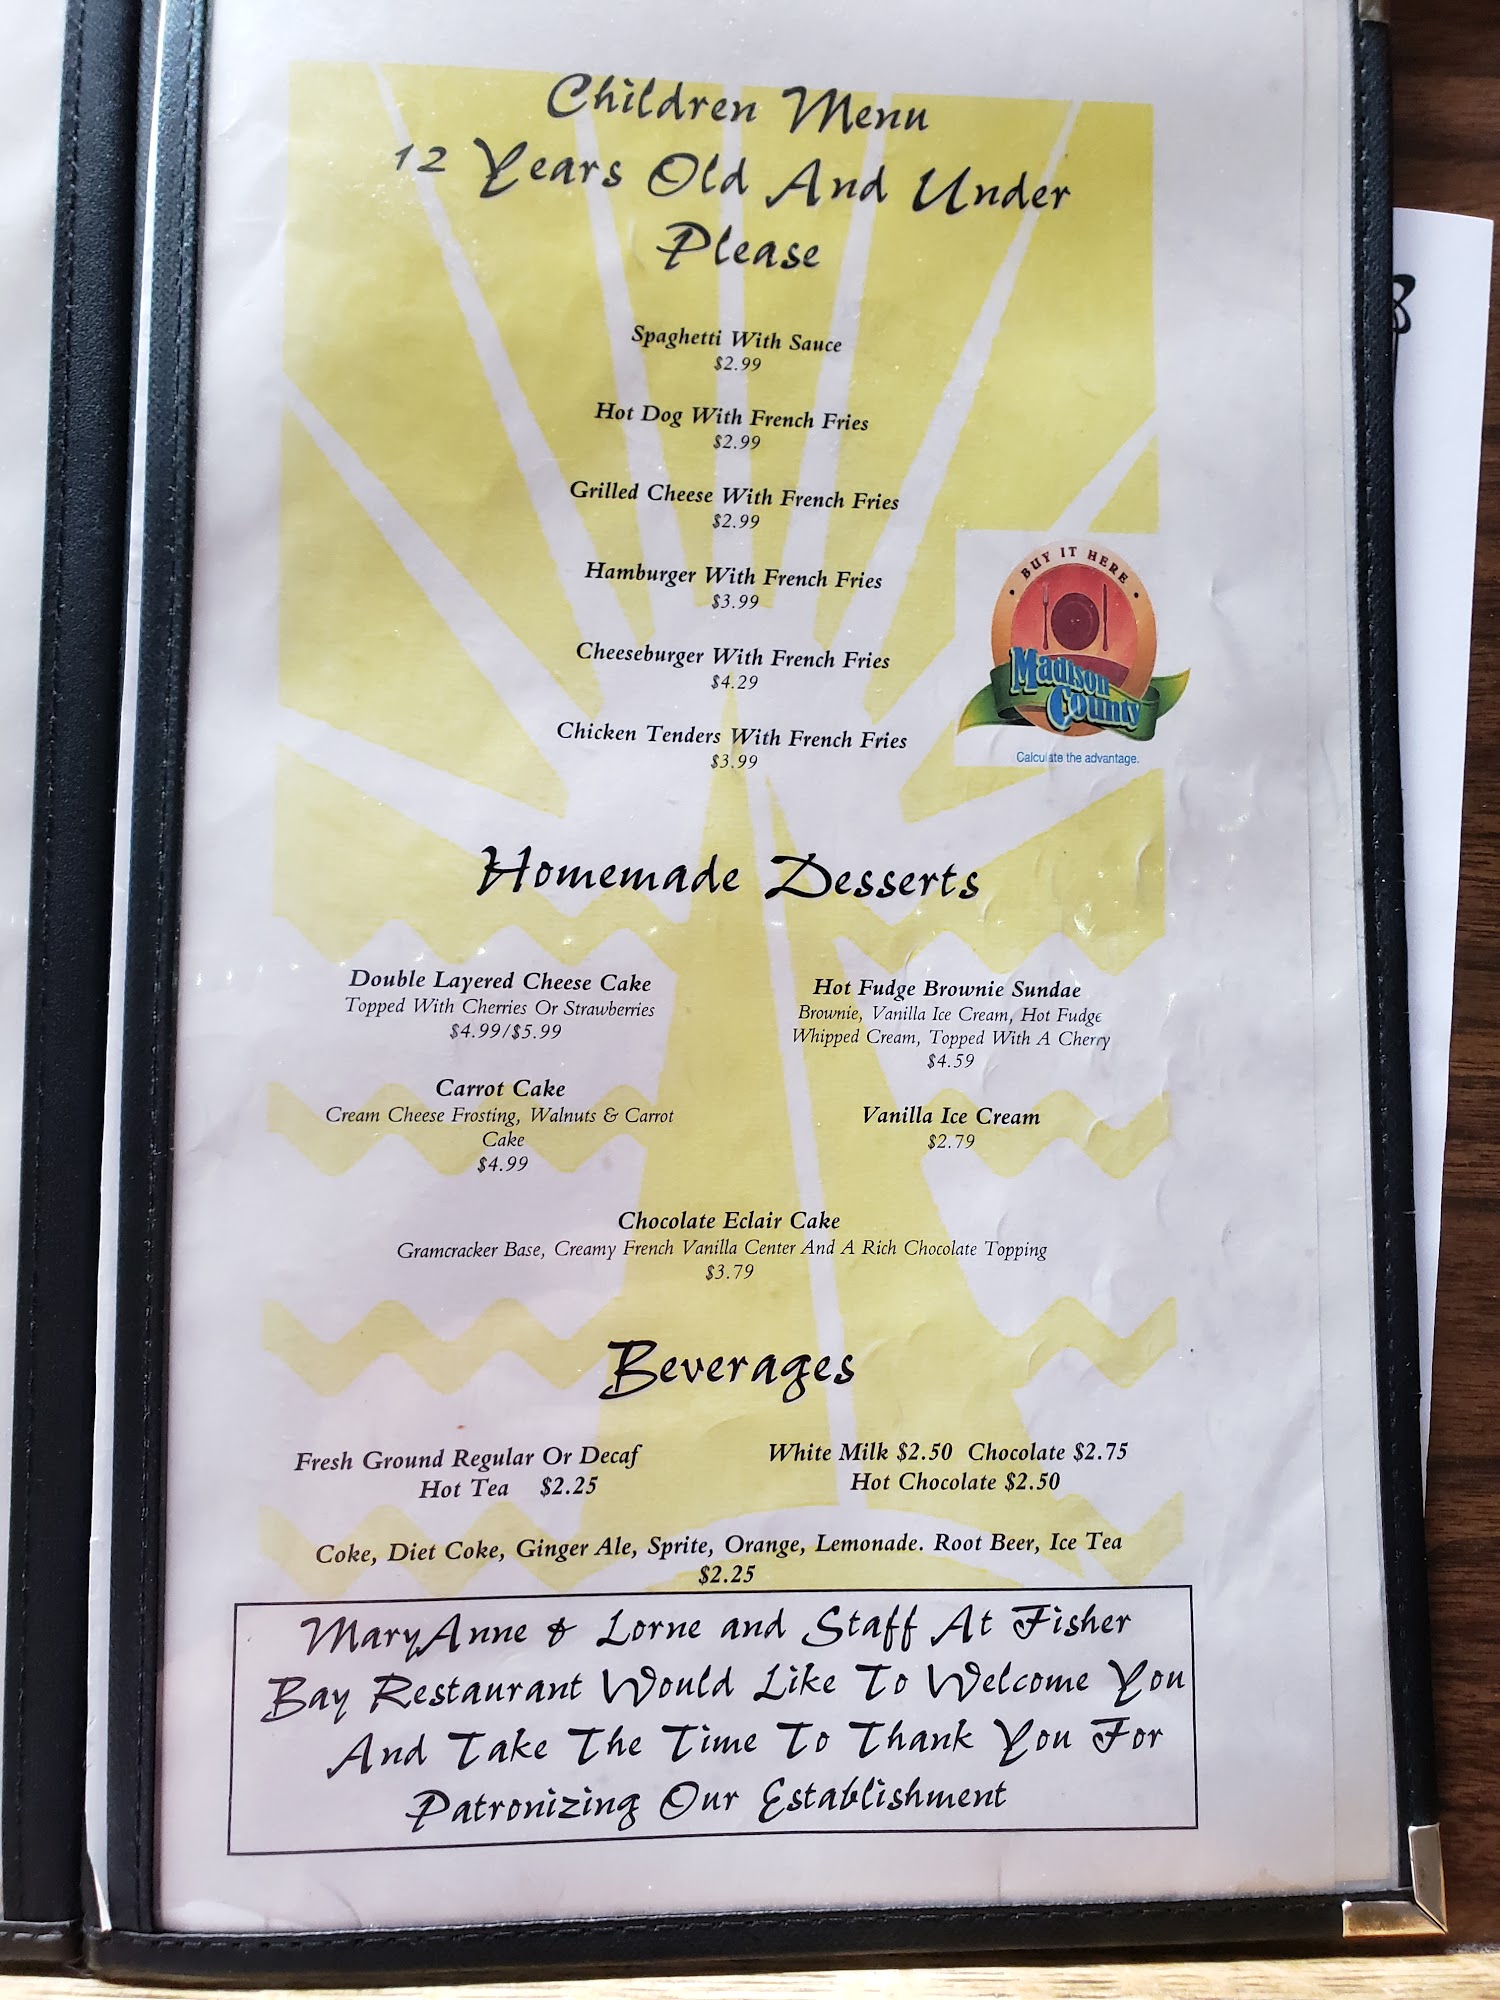 Children Menu
12 Years Old And Under
Please
Spaghetti With Sauce
$2.99
Hot Dog With French Fries
$2.99
Grilled Cheese With French Fries
$2.99
Hamburger With French Fries
$3.99
Cheeseburger With French Fries
$4.29
Chicken Tenders With French Fries
$3.99
• BUY IT HERE •
Madison
County
Calculate the advantage.
Homemade Desserts
Double Layered Cheese Cake
Topped With Cherries Or Strawberries
$4.99/$5.99
Carrot Cake
Cream Cheese Frosting, Walnuts & Carrot
Cake
$4.99
Hot Fudge Brownie Sundae
Brownie, Vanilla Ice Cream, Hot Fudge
Whipped Cream, Topped With A Cherry
$4.59
Vanilla Ice Cream
$2.79
Chocolate Eclair Cake
Gramcracker Base, Creamy French Vanilla Center And A Rich Chocolate Topping
$3.79
Beverages
Fresh Ground Regular Or Decaf
Hot Tea $2.25
White Milk $2.50 Chocolate $2.75
Hot Chocolate $2.50
Coke, Diet Coke, Ginger Ale, Sprite, Orange, Lemonade. Root Beer, Ice Tea
$2.25
MaryAnne & Lorne and Staff At Fisher
Bay Restaurant Would Like To Welcome You
And Take The Time To Thank You For
Patronizing Our Establishment